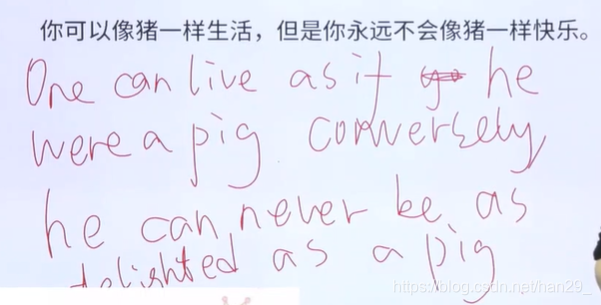 你可以像猪一样生活，但是你永远不会像猪一样快乐。
One can live as if he
were a pig. conversely,
he can never be as
delighted as a pig
https://blog.csdn.net/han29_